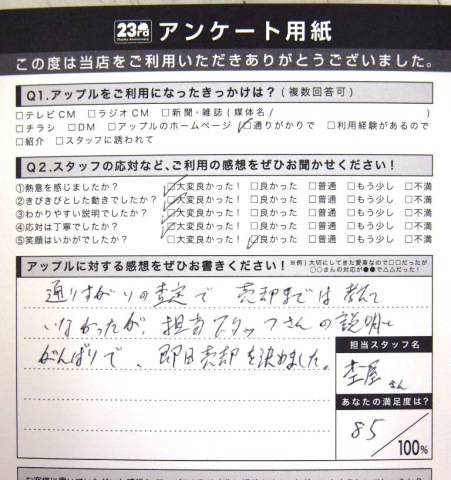 23rd アンケート用紙
Thanks Anniversary
この度は当店をご利用いただきありがとうございました。
Q1.アップルをご利用になったきっかけは?(複数回答可)
□テレビCM □ラジオCM □新聞・雑誌(媒体名/ )
□チラシ □DM □アップルのホームページ ☑通りがかりで □利用経験があるので
□紹介 □スタッフに誘われて
Q2.スタッフの応対など、ご利用の感想をぜひお聞かせください!
①熱意を感じましたか? ☑大変良かった! □良かった □普通 □もう少し □不満
②きびきびとした動きでしたか? ☑大変良かった! □良かった □普通 □もう少し □不満
③わかりやすい説明でしたか? ☑大変良かった! □良かった □普通 □もう少し □不満
④応対は丁寧でしたか? ☑大変良かった! □良かった □普通 □もう少し □不満
⑤笑顔はいかがでしたか? □大変良かった! ☑良かった □普通 □もう少し □不満
アップルに対する感想をぜひお書きください!
※例)大切にしてきた愛車なので□□だったが
○○さんの対応が●●で△△だった!
通りすがりの査定で 売却までは考えて
いなかったが、担当スタッフさんの説明と
がんばりで、即日売却を決めました。
担当スタッフ名
土屋さん
あなたの満足度は?
85/100%